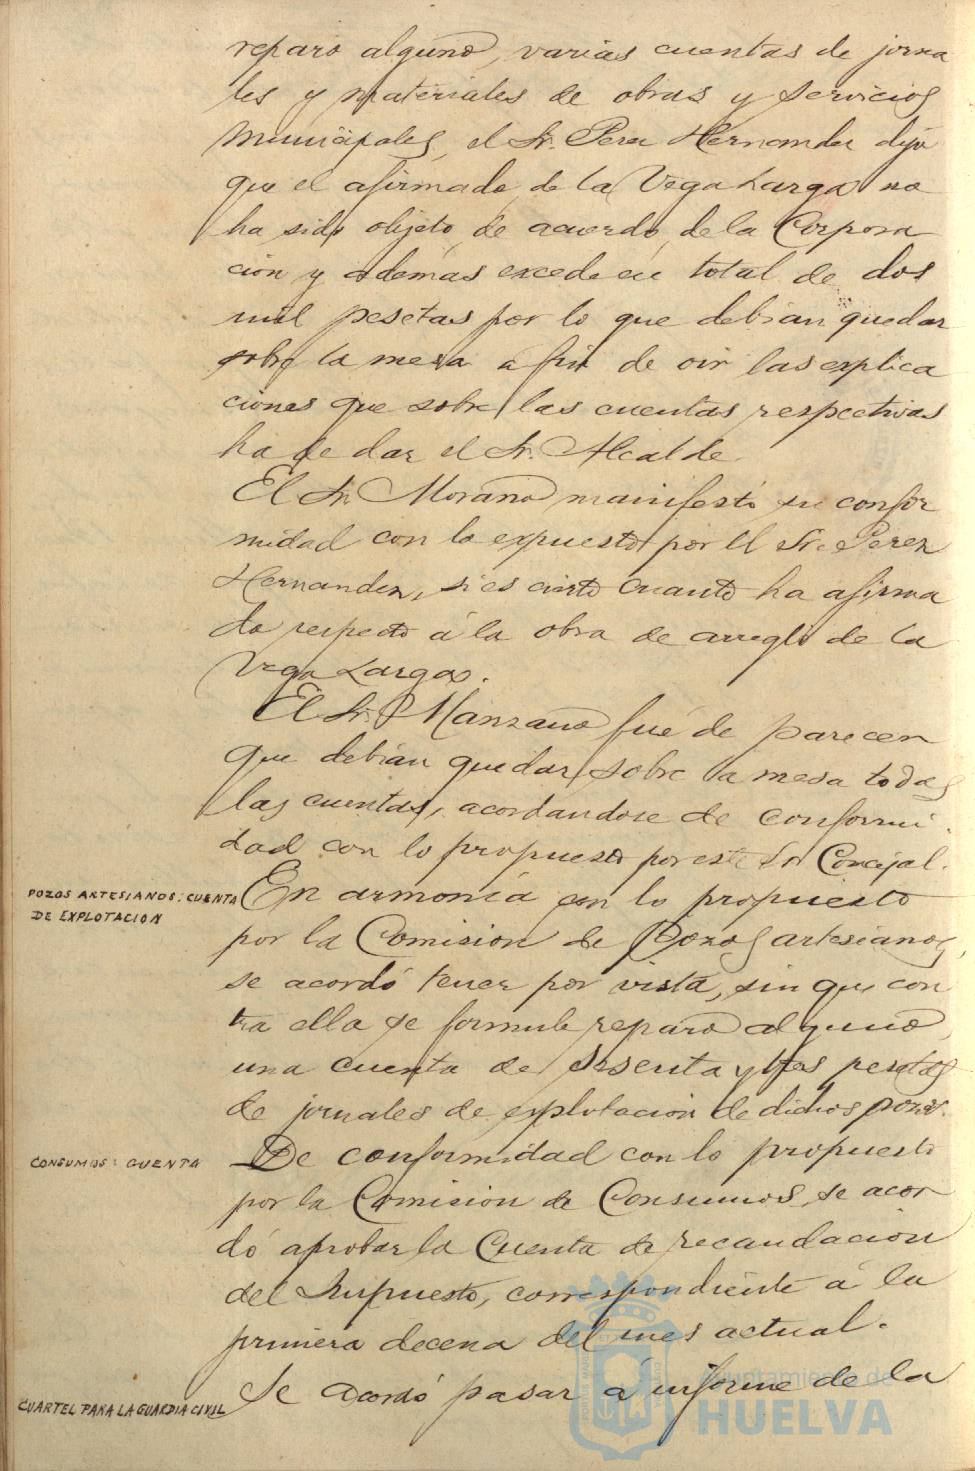 reparo alguno, varias cuentas de jorna
les y materiales de obras y servicios
Municipales, el Sr. Perez Hernandez dijo
que el afirmado de la Vega Larga no
ha sido objeto de acuerdo de la Corpora
cion y además excede en total de dos
mil pesetas por lo que debian quedar
sobre la mesa a fin de oir las explica
ciones que sobre las cuentas respectivas
ha de dar el Sr. Alcalde.
El Sr. Moraño manifestó su confor
midad con lo expuesto por el Sr. Perez
Hernandez, si es cierto cuanto ha afirma
do respecto á la obra de arreglo de la
Vega Larga.
El Sr. Manzano fué de parecer
que debian quedar sobre la mesa todas
las cuentas, acordandose de conformi
dad con lo propuesto por este Sr Concejal.
POZOS ARTESIANOS: CUENTA
DE EXPLOTACION
En armonía con lo propuesto
por la Comision de Pozos artesianos,
se acordó tener por vista, sin que con
tra ella se formule reparo alguno,
una cuenta de sesenta y tres pesetas
de jornales de explotacion de dichos pozos.
CONSUMOS: CUENTA
De conformidad con lo propuesto
por la Comision de Consumos, se acor
dó aprobar la Cuenta de recaudacion
del Impuesto, correspondiente á la
primera decena del mes actual.
CUARTEL PARA LA GUARDIA CIVIL
Se acordó pasar á informe de la
Ayuntamiento de
HUELVA